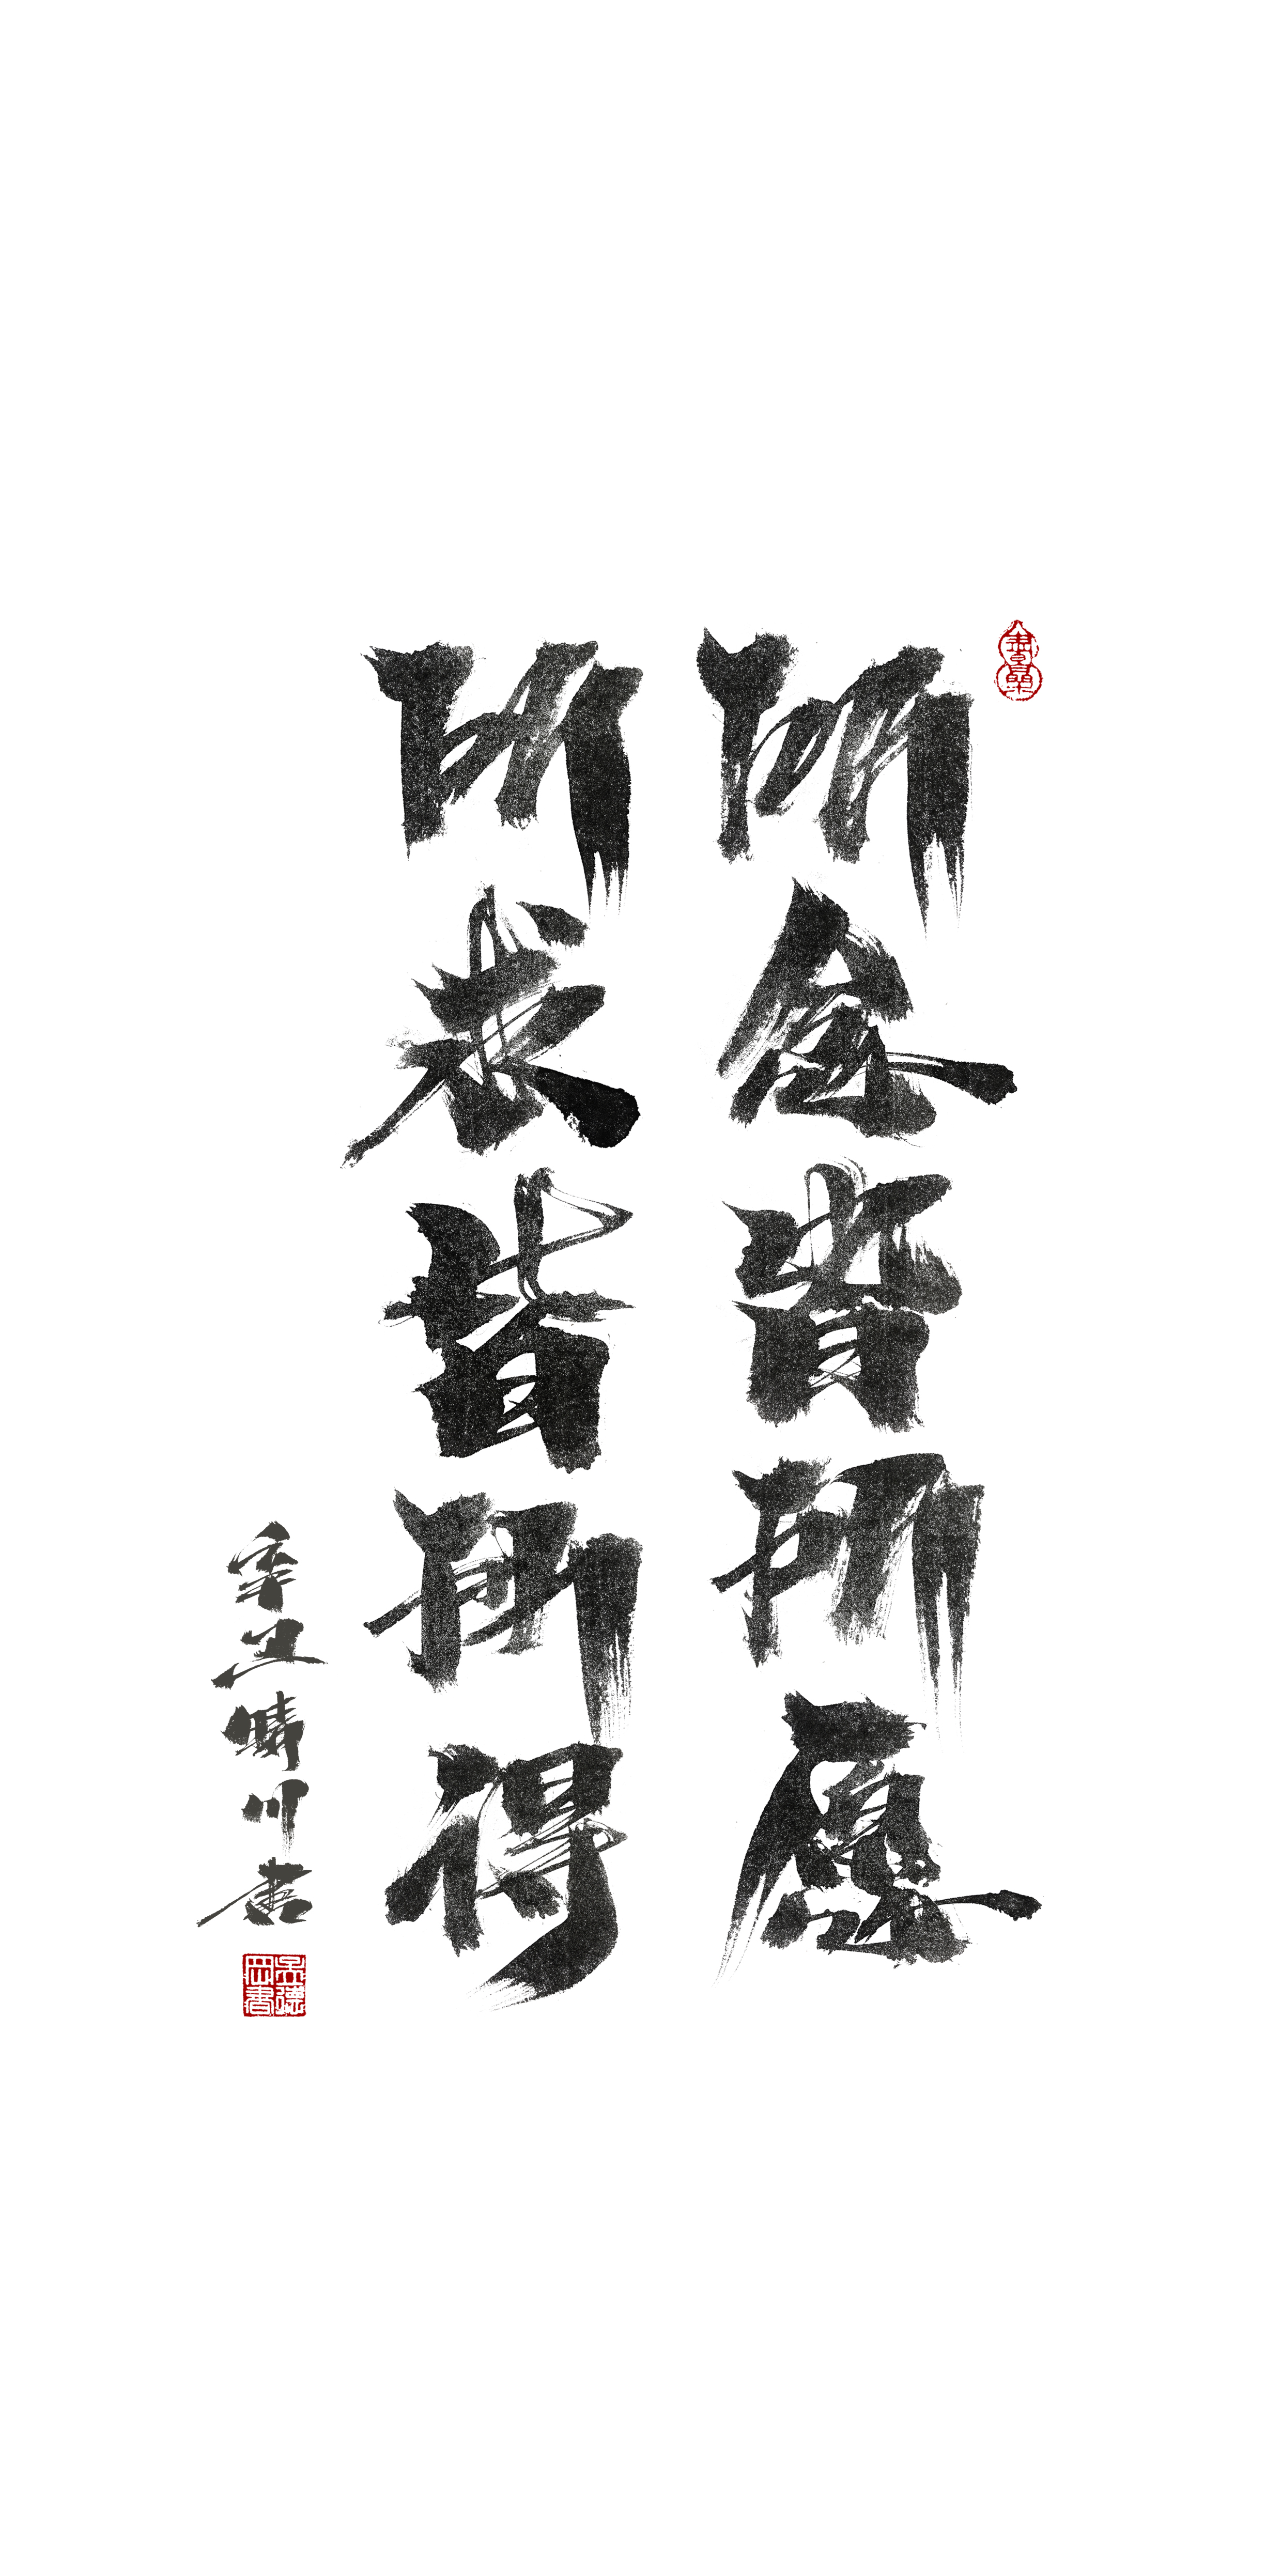 所念皆所愿
所求皆所得
辛丑晴川書